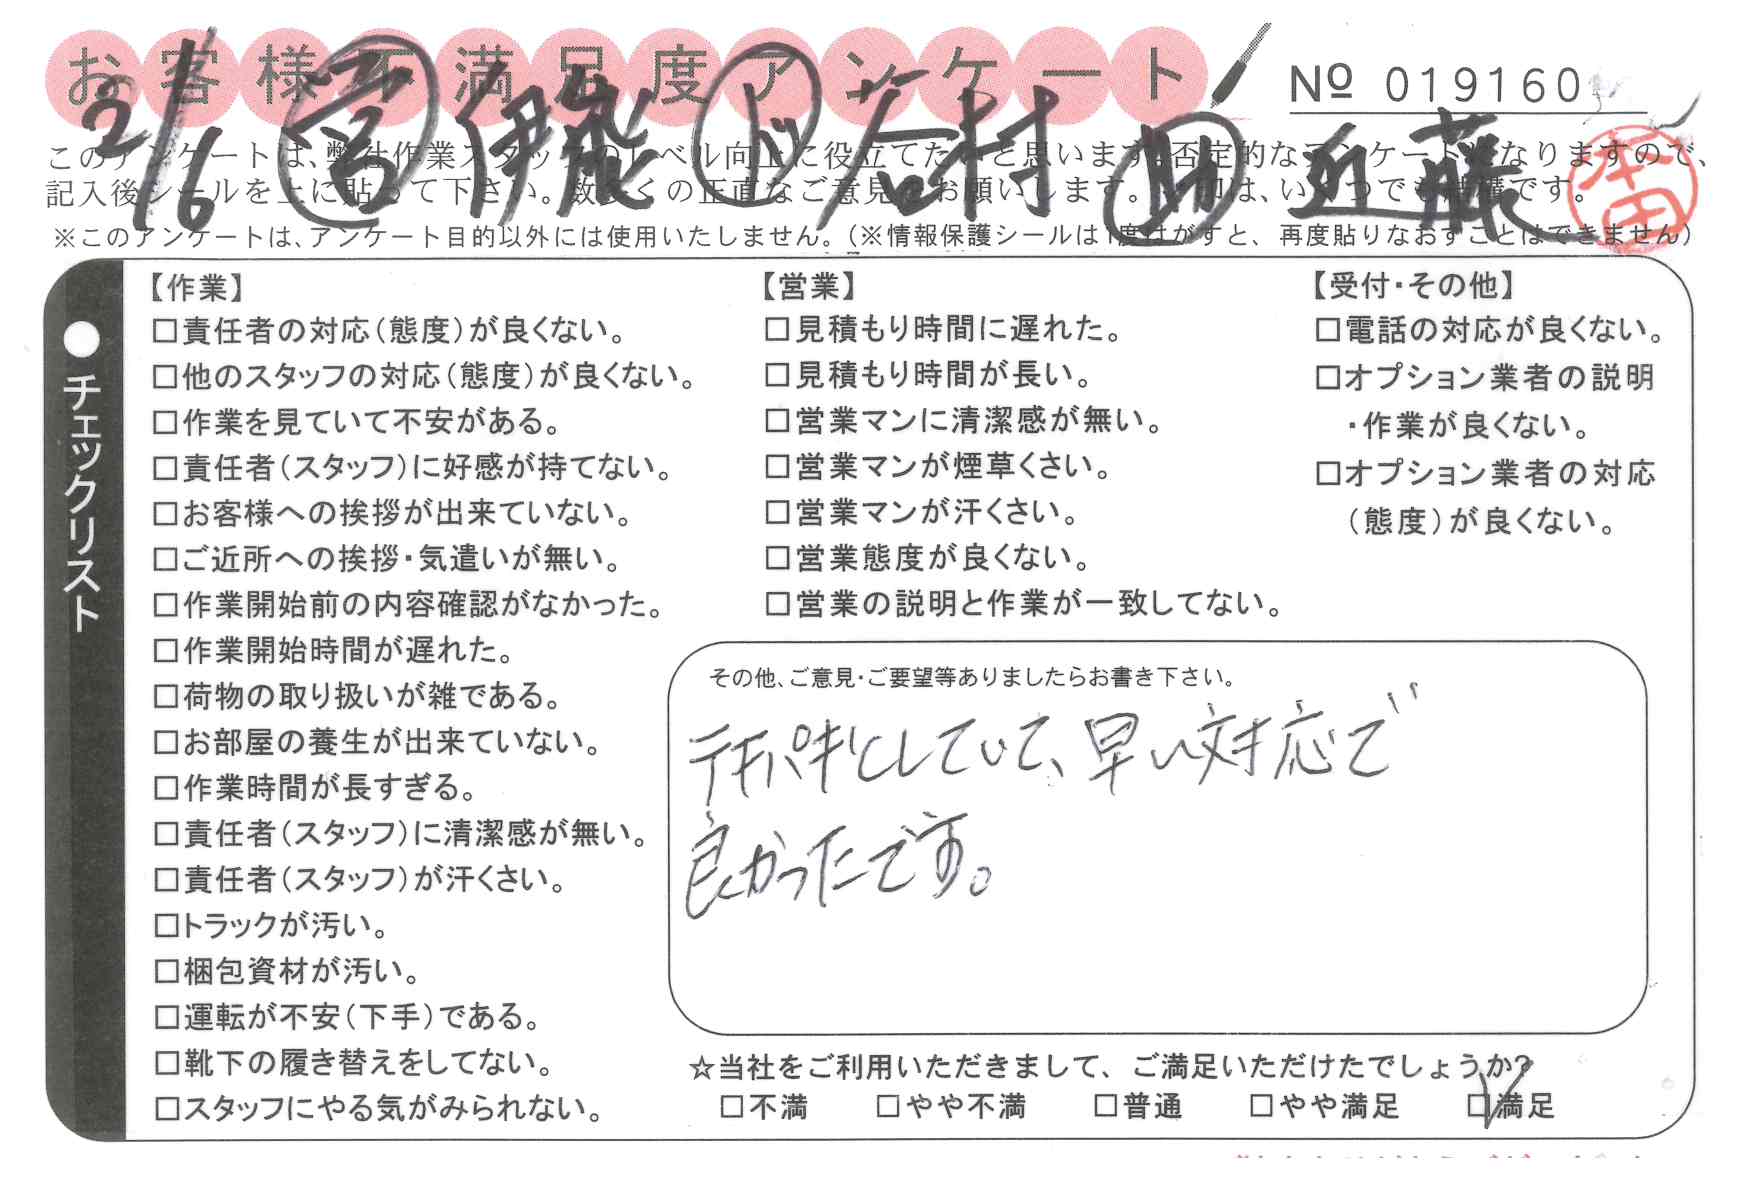 お客様不満足度アンケート
№ 019160
2/6 営 伊飛 ド 谷村 助 近藤
本田
このアンケートは、弊社作業スタッフのレベル向上に役立てたいと思います。否定的なアンケートになりますので、
記入後シールを上に貼って下さい。数多くの正直なご意見をお願いします。
※このアンケートは、アンケート目的以外には使用いたしません。(※情報保護シールは1度はがすと、再度貼りなおすことはできません)
●チェックリスト
【作業】
□責任者の対応(態度)が良くない。
□他のスタッフの対応(態度)が良くない。
□作業を見ていて不安がある。
□責任者(スタッフ)に好感が持てない。
□お客様への挨拶が出来ていない。
□ご近所への挨拶・気遣いが無い。
□作業開始前の内容確認がなかった。
□作業開始時間が遅れた。
□荷物の取り扱いが雑である。
□お部屋の養生が出来ていない。
□作業時間が長すぎる。
□責任者(スタッフ)に清潔感が無い。
□責任者(スタッフ)が汗くさい。
□トラックが汚い。
□梱包資材が汚い。
□運転が不安(下手)である。
□靴下の履き替えをしてない。
□スタッフにやる気がみられない。
【営業】
□見積もり時間に遅れた。
□見積もり時間が長い。
□営業マンに清潔感が無い。
□営業マンが煙草くさい。
□営業マンが汗くさい。
□営業態度が良くない。
□営業の説明と作業が一致してない。
【受付・その他】
□電話の対応が良くない。
□オプション業者の説明
・作業が良くない。
□オプション業者の対応
(態度)が良くない。
その他、ご意見・ご要望等ありましたらお書き下さい。
テキパキとしていて、早い対応で
良かったです。
☆当社をご利用いただきまして、ご満足いただけたでしょうか?
□不満 □やや不満 □普通 □やや満足 ☑満足